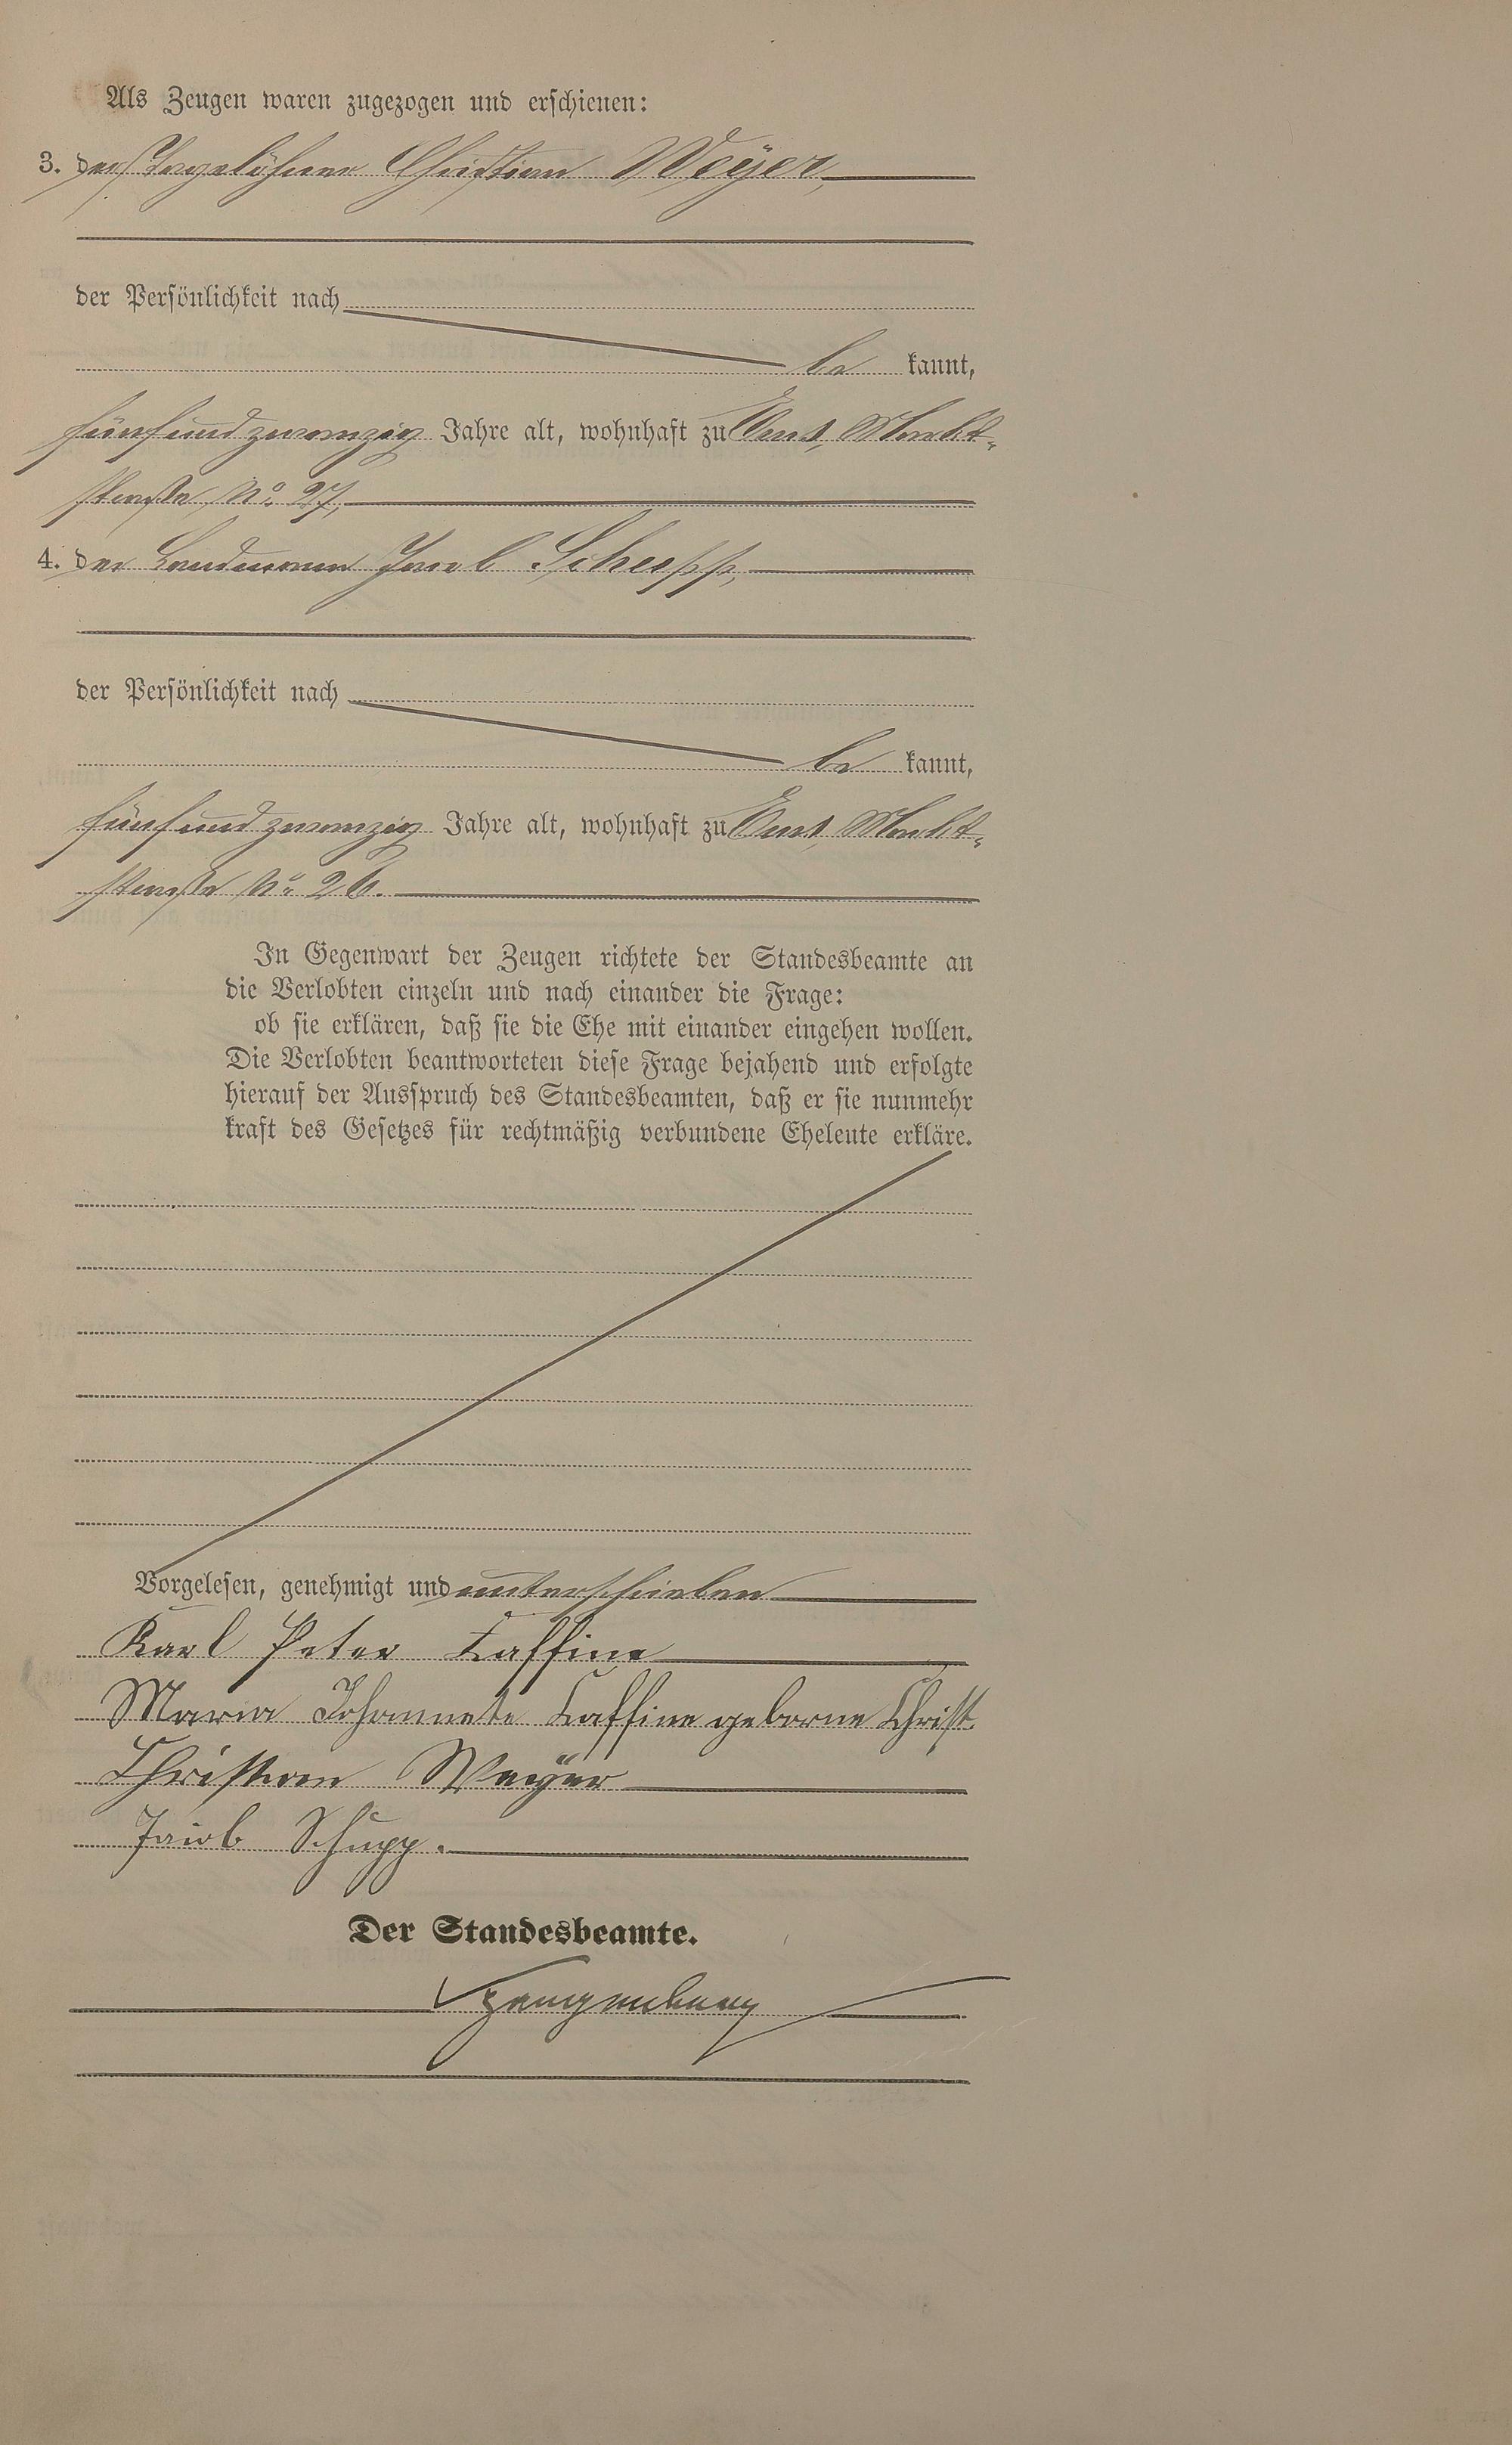 Als Zeugen waren zugezogen und erschienen:
3. der Tagelöhner Christian Weyer,
der Persönlichkeit nach
be kannt,
fünfundzwanzig Jahre alt, wohnhaft zu Ems, Markt-
straße No. 27,
4. der Landmann Jacob Schupp,
der Persönlichkeit nach
be kannt,
fünfundzwanzig Jahre alt, wohnhaft zu Ems, Markt-
straße No. 26.
In Gegenwart der Zeugen richtete der Standesbeamte an
die Verlobten einzeln und nach einander die Frage:
ob sie erklären, daß sie die Ehe mit einander eingehen wollen.
Die Verlobten beantworteten diese Frage bejahend und erfolgte
hierauf der Ausspruch des Standesbeamten, daß er sie nunmehr
kraft des Gesetzes für rechtmäßig verbundene Eheleute erkläre.
Vorgelesen, genehmigt und unterschrieben
Karl Peter Caffine
Maria Johannete Caffine geborne Christ.
Christian Weyer
Jacob Schupp.
Der Standesbeamte.